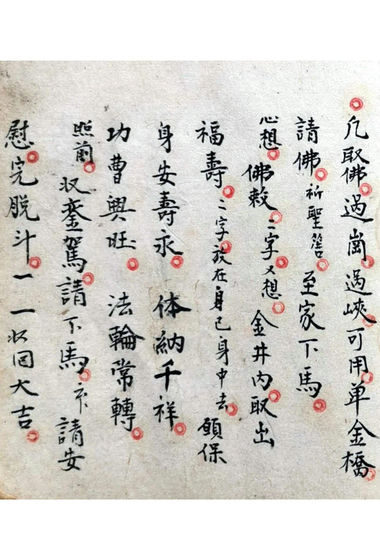 凡取佛過崗過峽可用单金橋
請佛祈聖筶至家下馬
心想佛敕二字又想金井内取出
福壽二字放在身己身中去願保
身安壽永体納千祥
功曹興旺法輪常轉
照前収銮駕請下馬示請安
慰完脱斗一一收回大吉